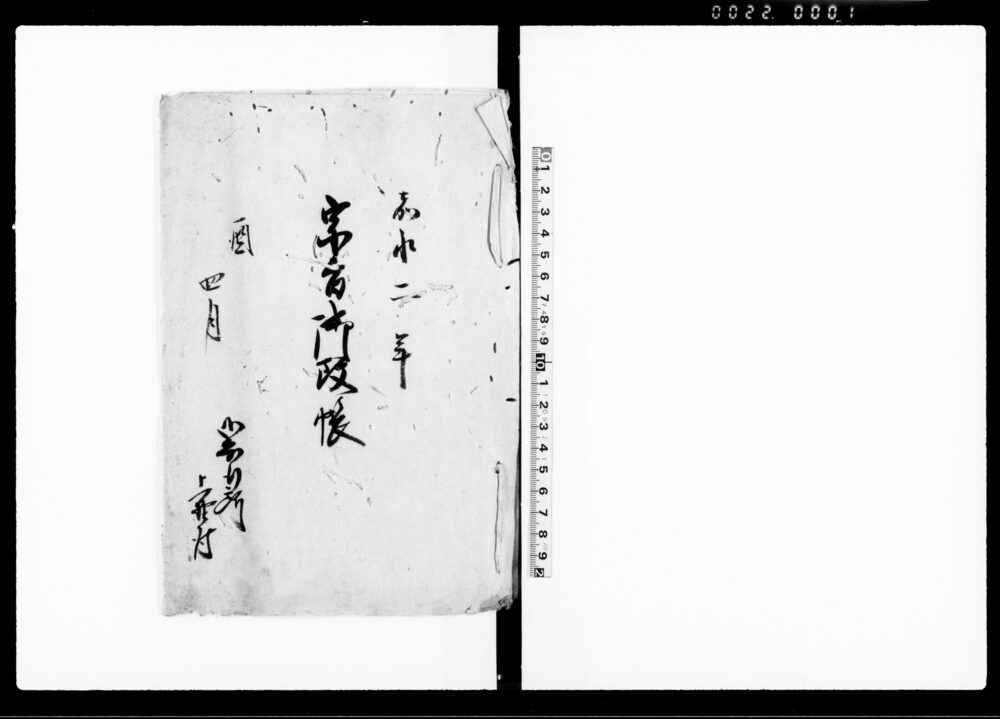 0022 0001
嘉永二年
宗旨御改帳
酉
四月
0 1 2 3 4 5 6 7 8 9 10 1 2 3 4 5 6 7 8 9 2